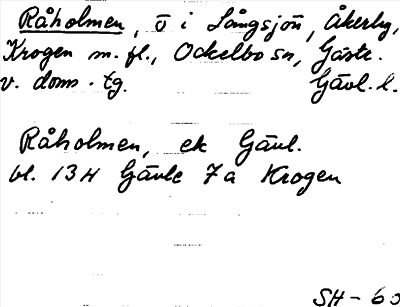 Råholmen, ö i Långsjön, Åkerby,
Krogen m. fl., Ockelbo sn, Gästr.
v. doms. tg. Gävl. l.
Råholmen, ek Gävl.
bl. 13H Gävle 7a Krogen
SH-60